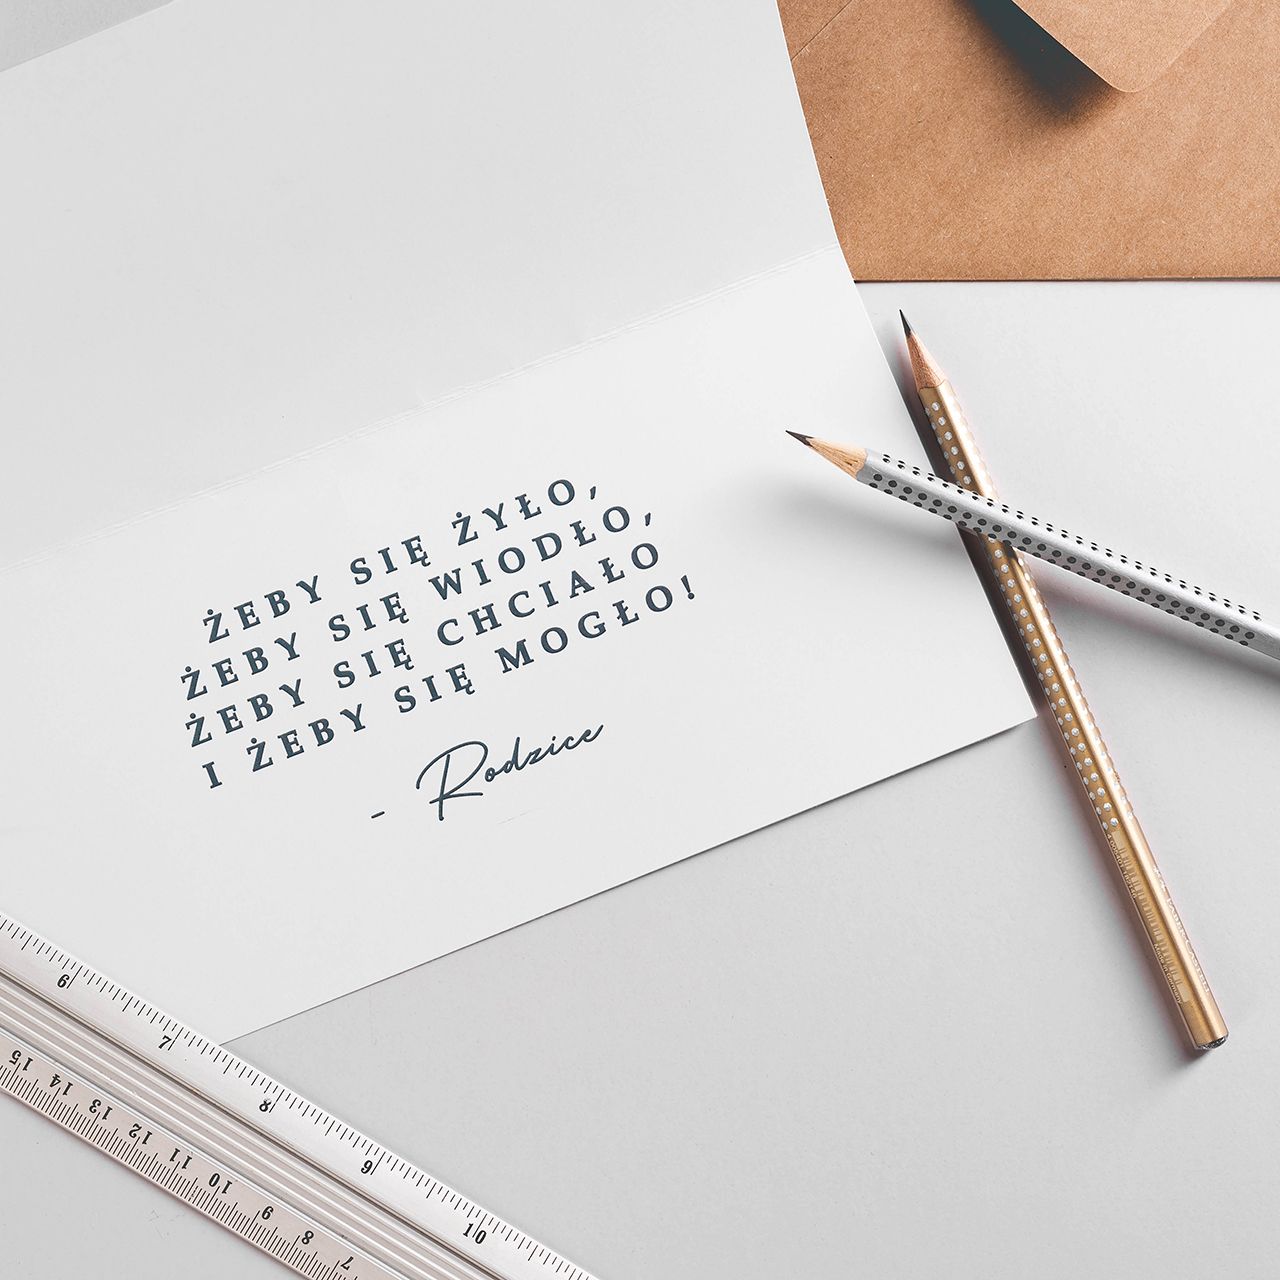 ŻEBY SIĘ ŻYŁO,
ŻEBY SIĘ WIODŁO,
ŻEBY SIĘ CHCIAŁO
I ŻEBY SIĘ MOGŁO!
- Rodzice
6
7
8
9
10
15 14 13 12 11 10 9 8 7